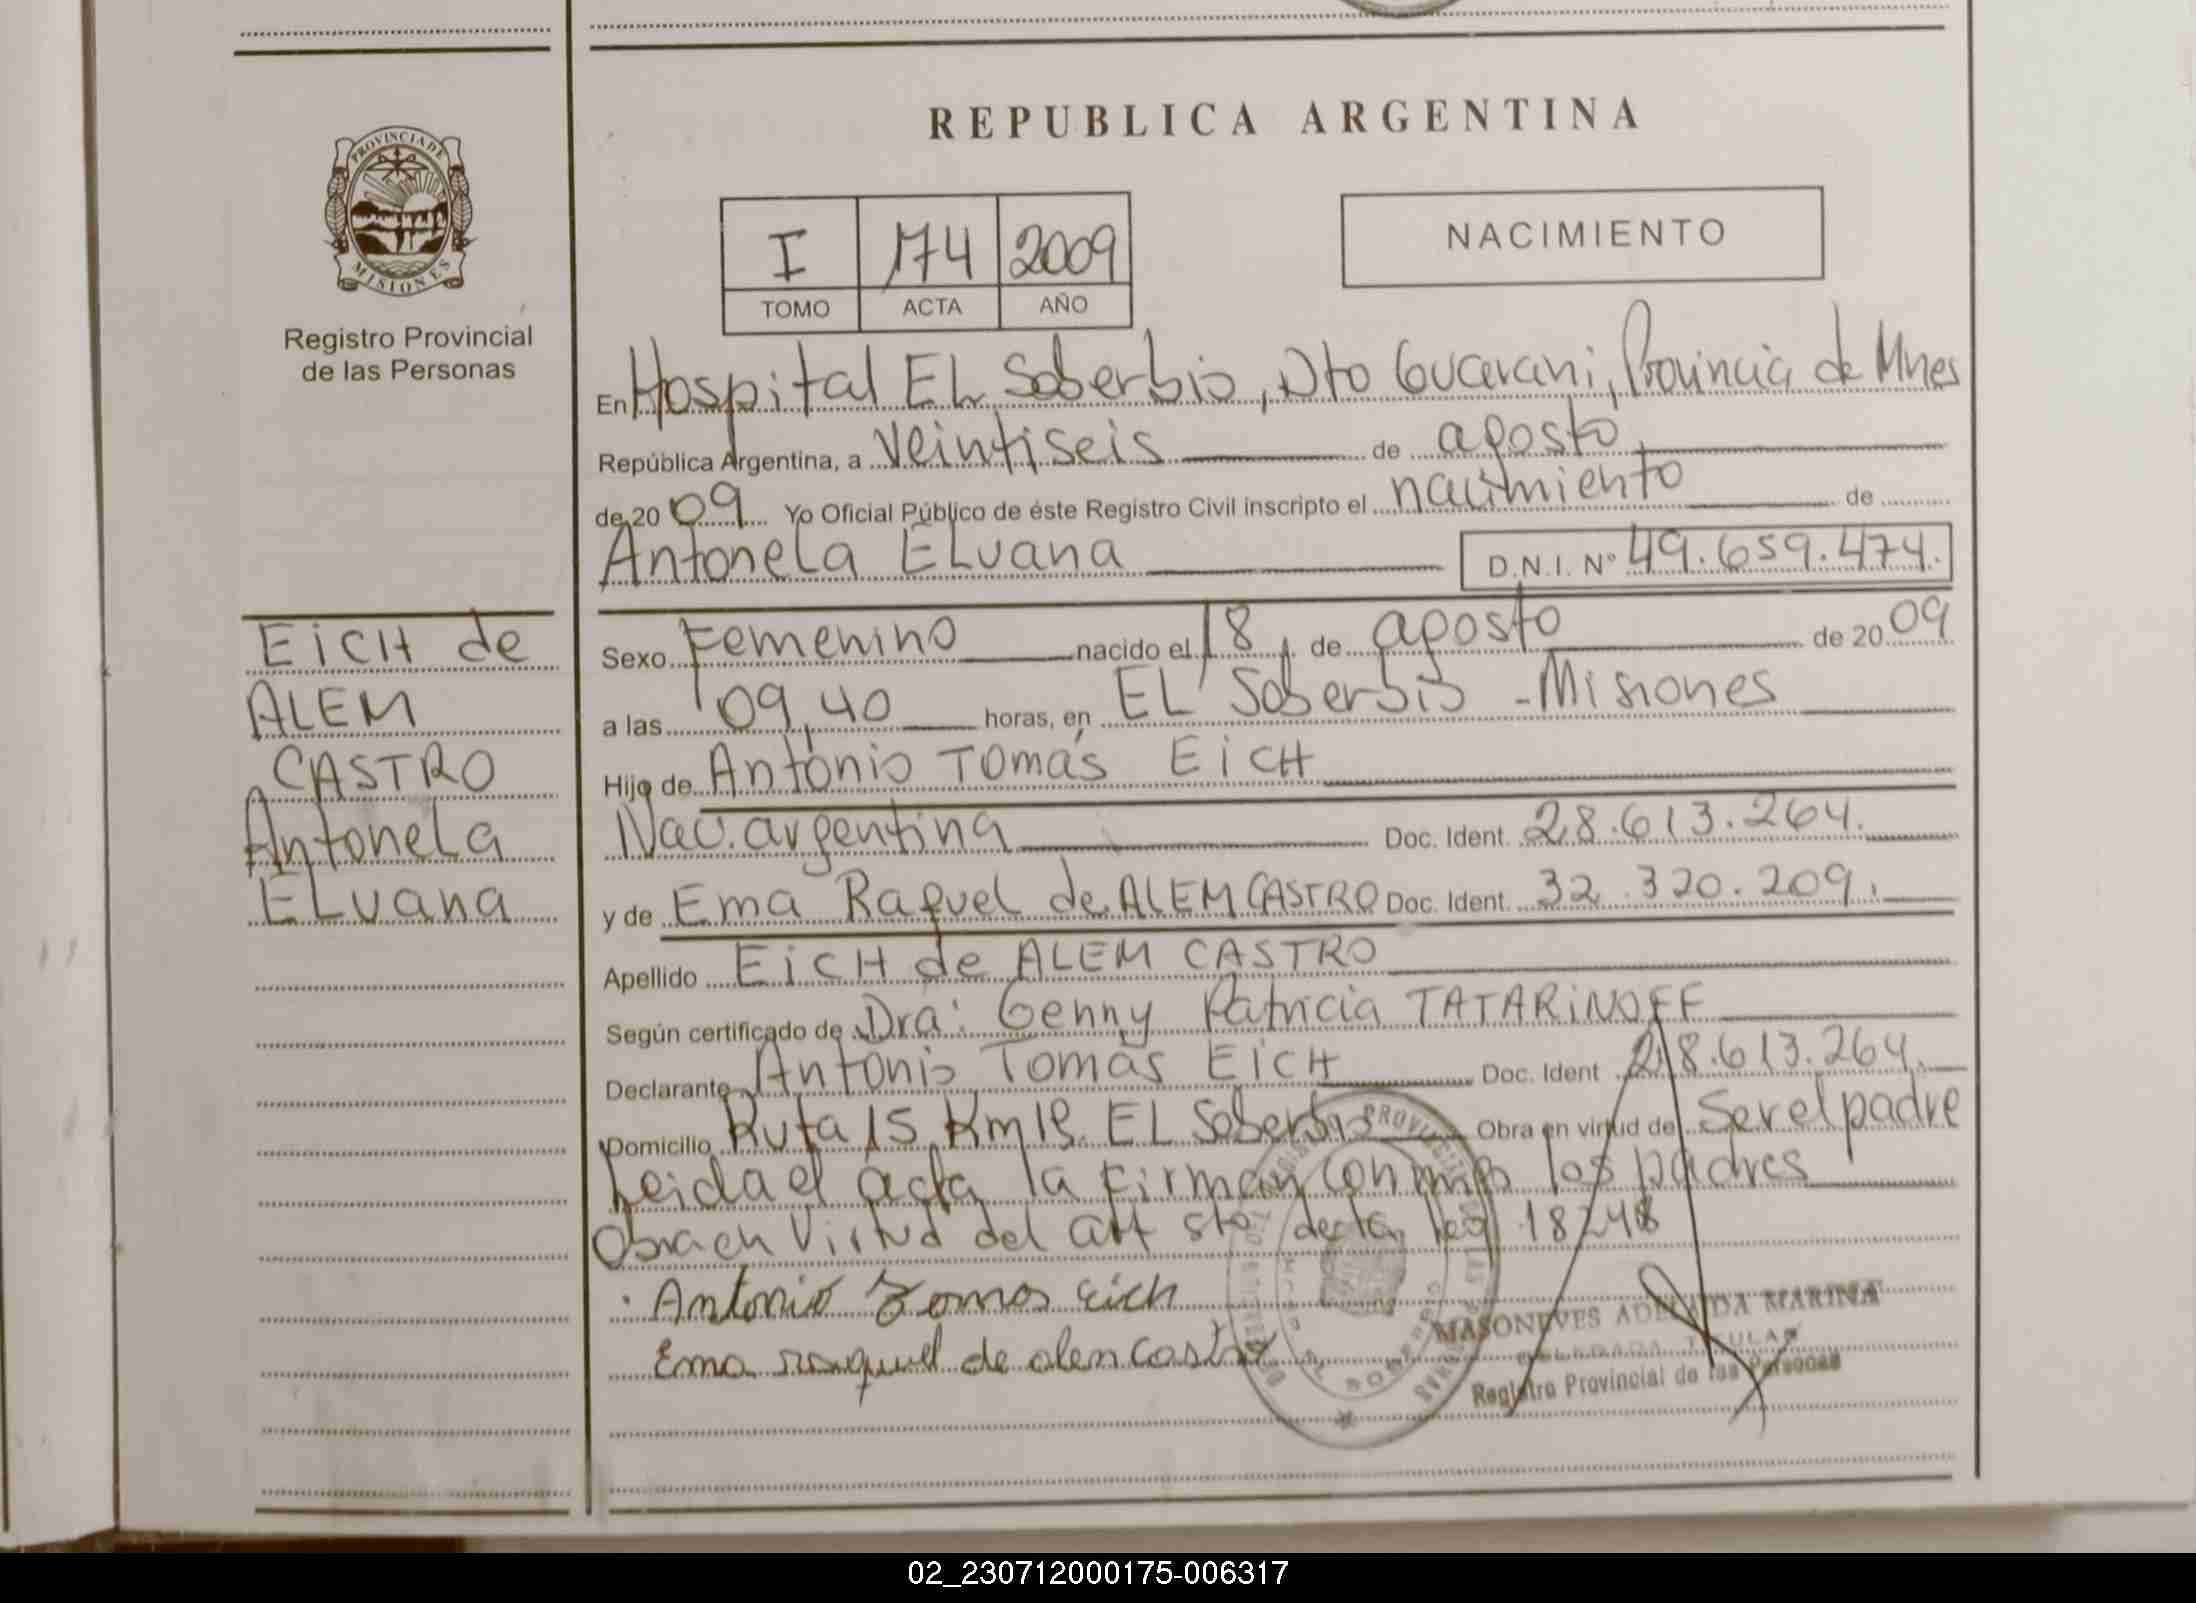 REPUBLICA ARGENTINA
PROVINCIA DE
MISIONES
Registro Provincial
de las Personas
I 174 2009
TOMO ACTA AÑO
NACIMIENTO
En Hospital EL Soberbio, Dto Guarani, Provincia de Mnes
República Argentina, a veintiseis de agosto
de 2009 Yo Oficial Público de éste Registro Civil inscripto el nacimiento de
Antonela ELuana D.N.I. Nº 49.659.474.
EicH de
ALEM
CASTRO
Antonela
ELuana
Sexo Femenino nacido el 18 de agosto de 2009
a las 09,40 horas, en EL Soberbio - Misiones
Hijo de Antonio Tomás EicH
Nac. argentina Doc. Ident. 28.613.264.
y de Ema Raquel de ALEM CASTRO Doc. Ident. 32.320.209.
Apellido EicH de ALEM CASTRO
Según certificado de Dra: Genny Patricia TATARiNOFF
Declarante Antonio Tomás EicH Doc. Ident 28.613.264.
Domicilio Ruta 15 Km 18 EL Soberbio Obra en virtud de Ser el padre
Leida el acta la firman conmigo los padres
Obra en Virtud del art 5to de la ley 18248
Antonio Tomas Eich
Ema raquel de alen castro
MASONEVES ADELAIDA MARINA
DELEGADA TITULAR
Registro Provincial de las Personas
02_230712000175-006317